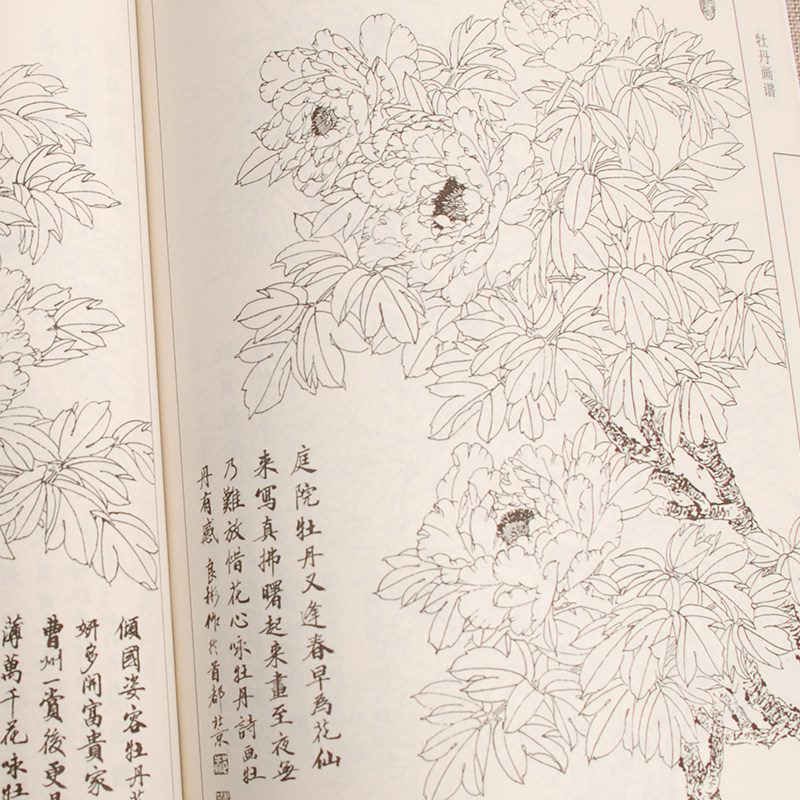 牡丹画谱
庭院牡丹又逢春早為花仙
来寫真拂曙起来畫至夜無
乃難放惜花心咏牡丹詩画牡
丹有感 良彬作於首都北京
傾國姿容牡丹
妍多開富貴家
曹州一賞後更
薄萬千花咏牡